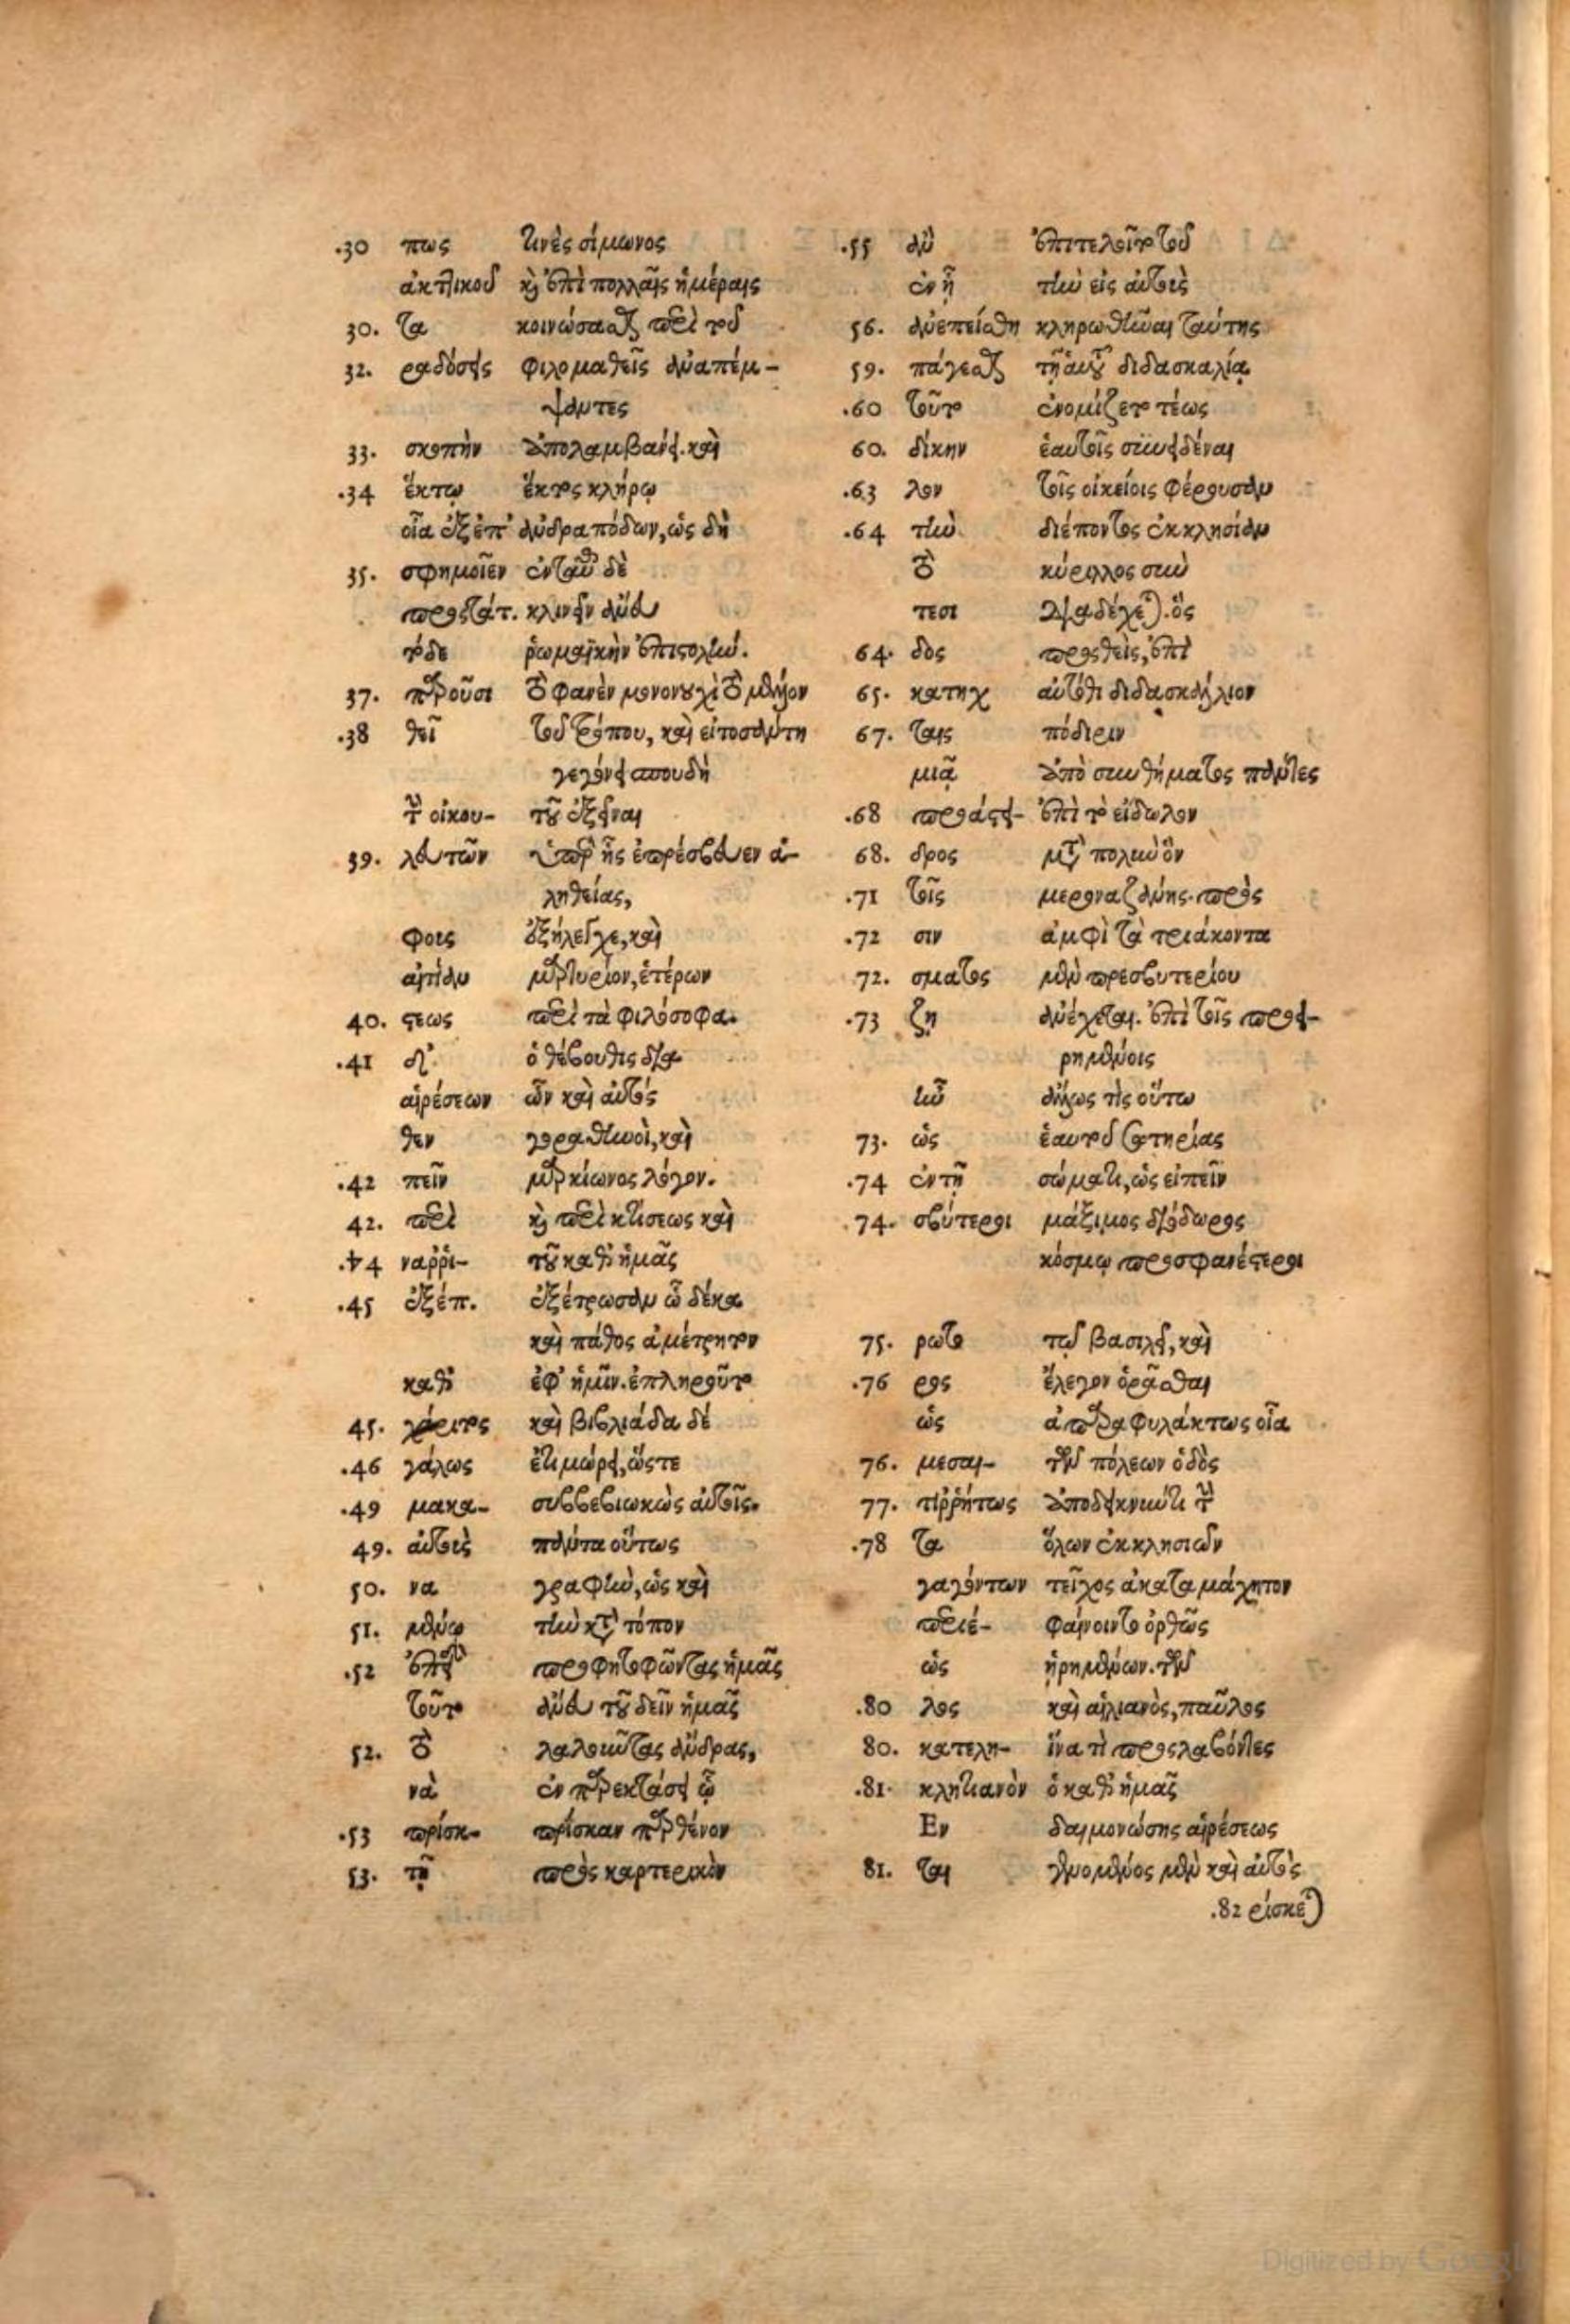 .30 πως τινὲς σίμωνος
ἀκτικοῦ καὶ ἐπὶ πολλαῖς ἡμέραις
30. τα κοινώσασθαι περὶ τοῦ
32. ραδόσεις φιλομαθεῖς ἀναπέμ-
ψαντες
33. σκοπὴν ἀπολαμβανει. καὶ
.34 ἕκτῳ ἕκτος κλήρῳ
οἷα ἐξέπ' ἀνδραπόδων, ὡς δὴ
35. σφημοῖεν ἐνταῦθα δὲ
προστάτ. κλινειν ἄνευ
τόδε ῥωμαϊκὴν ἐπιστολήν.
37. παροῦσι τὸ φανὲν μονονουχὶ τὸ μέλλον
.38 θεῖ τοῦ τρόπου, καὶ εἰ τοσαύτη
γεγόνει σπουδὴ
τὴν οἰκου- τοῦ ἐξεῖναι
39. λευτῶν ὑπὲρ ἧς ἐπρέσβευεν ἀ-
ληθείας,
φοις ἐξήλεγχε, καὶ
αἰτίαν μαρτυρίον, ἑτέρων
40. σεως περὶ τὰ φιλόσοφα.
.41 δι' ὁ θέβουθις δια
αἱρέσεων ὧν καὶ αὐτός
θεν γοραθηνοὶ, καὶ
.42 πεῖν μαρκίωνος λόγον.
42. περὶ καὶ περὶ κτίσεως καὶ
.44 ναῤῥι- τοῦ καθ' ἡμᾶς
.45 ἐξέπ. ἐξέτρωσαν ὧ δέκα
καὶ πάθος ἀμέτρητον
καθ' ἐφ' ἡμῖν. ἐπληροῦτο
45. χάριτος καὶ βιβλιάδα δέ
.46 γάλως ἐτιμώρει, ὥστε
.49 μακα- συββεβιωκὼς αὐτοῖς.
49. αὐτοὺς πάντα οὕτως
50. να γραφὴν, ὡς καὶ
51. μένῳ τὴν κατὰ τόπον
.52 προφητοφῶντας ἡμᾶς
τοῦτο ἄνευ τοῦ δεῖν ἡμᾶς
52. τὸ λαλοῦντας ἄνδρας,
νὰ ἐν παρεκτάσει ᾧ
.53 πρίσκ- πρίσκαν παρθένον
53. τῇ πρὸς καρτερικὸν
.55 ἂν ἐπιτελοῖτο τοῦ
ἐν ᾗ τὴν εἰς αὐτοὺς
56. ἀνεπείσθη κληρωθῆναι ταύτης
59. πάγεσθαι τῇ αὐτοῦ διδασκαλίᾳ
.60 τοῦτο ἐνομίζετο τέως
60. δίκην ἑαυτοῖς συνειδέναι
.63 λον τοῖς οἰκείοις φέρουσαν
.64 τὴν διέποντος ἐκκλησίαν
τὸ κύριλλος συν
τεσι διαδέχεται. ὃς
64. δος προσθεὶς, ἐπὶ
65. κατηχ αὐτόθι διδασκάλιον
67. ταις πόδιριν
μιᾷ ἀπὸ συνθήματος πάντες
.68 προάστει- ἐπὶ τὸ εἴδωλον
68. δρος μετὰ πολὺν ὃν
.71 τοῖς μεροναζάνης. πρὸς
.72 σιν ἀμφὶ τὰ τριάκοντα
72. σματος μὲν πρεσβυτερίου
.73 ζη ἀνέχεται. ἐπὶ τοῖς προει-
ρημένοις
ἦν ἄλλως τὶς οὕτω
73. ὡς ἑαυτοῦ σωτηρίας
.74 ἐν τῇ σώματι, ὡς εἰπεῖν
74. σβύτεροι μάξιμος διόδωρος
κόσμῳ προσφανέστεροι
75. ρωτο τῷ βασιλεῖ, καὶ
.76 ρος ἔλεγον ὁρᾶσθαι
ὡς ἀπαραφυλάκτως οἷα
76. μεσαι- τῶν πόλεων ὁδὸς
77. τιῤῥήτως ἀποδεικνύντι τὴν
.78 τα ὅλων ἐκκλησιῶν
γαγόντων τεῖχος ἀκαταμάχητον
περιέ- φαίνοιντο ὀρθῶς
ὡς ᾑρημένων. τῶν
.80 λος καὶ αἰλιανὸς, παῦλος
80. κατελη- ἵνα τὶ προσλαβόντες
.81. κλητιανὸν ὁ καθ' ἡμᾶς
Εν δαιμονώσης αἱρέσεως
81. ται γενομένος μὲν καὶ αὐτὸς
.82 ρίσκεται
Digitized by Google